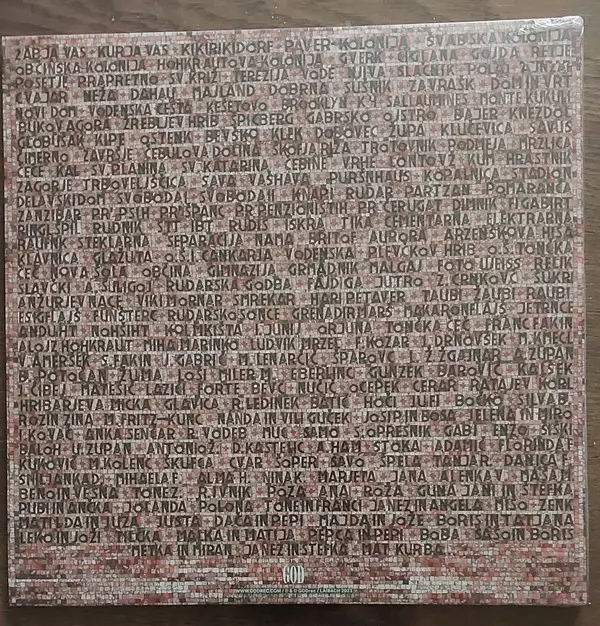 ŽABJA VAS + KURJA VAS + KIKIRIKIDORF + PAVER-KOLONIJA + ŠVABSKA KOLONIJA
OBČINSKA KOLONIJA + HOHKRAUTOVA KOLONIJA + GVERK + CIGLANA + GOJDA + RETJE
POSETJE + PRAPRETNO + SV. KRIŽ + TEREZIJA + VODE + NJIVA + SLAČNIK + POLAJ
CVAJAR + NEŽA + DAHAU + MAJLAND + DOBRNA + SUŠNIK + ZAVRAŠK + DOM IN VRT
NOVI DOM + VODENSKA CESTA + KEŠETOVO + BROOKLYN + SALLAUMINES + MONTE KUKULI
BUKOVA GORA + ŽREBLJEV HRIB + ŠPICBERG + GABRSKO + OJSTRO + BAJER + KNEZDOL
GLOBUŠAK + KIPE + OSTENK + BEVŠKO + KLEK + DOBOVEC + ŽUPA + KLJUČEVICA + SAVUS
ČIMERNO + ZAVRŠJE + ČEBULOVA DOLINA + ŠKOFJA RIŽA + TROTOVNIK + PODMEJA + MRZLICA
ČEČE + KAL + SV. PLANINA + SV. KATARINA + ČEBINE + VRHE + LONTOVŽ + KUM + HRASTNIK
ZAGORJE + TRBOVELJŠČICA + SAVA + VAŠHAVA + PURŠNHAUS + KOPALNICA + STADION
DELAVSKI DOM + SVOBODA I + SVOBODA II + KNAPI + RUDAR + PARTIZAN + POMARANČA
ZANZIBAR + PR' PSIH + PR' ŠPANC + PR' PENZIONISTIH + PR' ČERUGAT + DIMNIK + FIGABIRT
RINGLŠPIL + RUDNIK + STT + IBT + RUDIS + ISKRA + TIKA + CEMENTARNA + ELEKTRARNA
STEKLARNA + SEPARACIJA + NAMA + BRITOF + AURORA + ARZENŠKOVA HIŠA
KLAVNICA + GLAŽUTA + O.Š. I. CANKARJA + VODENSKA + PLEVČKOV HRIB + O.Š. TONČKA
ČEČ + NOVA ŠOLA + OBČINA + GIMNAZIJA + GRMADNIK + MALGAJ + FOTO WEISS + RELIK
RUDARSKA GODBA + FAJDIGA + JUTRO
VIKI MORNAR + SMREKAR + HARI PETAVER + TAUBI ZAUBI RAUBI
RUDARSKO SONCE + GRENADIRMARŠ + MAKARONFLAJŠ + JETRNCE
ANDUHT + NOHŠIHT + KOLMKIŠTA + 1. JUNIJ + ORJUNA + TONČKA ČEČ + FRANC FAKIN
ALOJZ HOHKRAUT + MIHA MARINKO + LUDVIK MRZEL + F. KOZAR + J. DRNOVŠEK + M. KMECL
V. AMERŠEK + S. FAKIN + U. GABRIČ + M. LENARČIČ + ŠPAROVC + L. Ž. ŽGAJNAR + A. ŽUPAN
B. POTOČAN + ŽUMA + LOŠI + MILER M. + EBERLINC + GUNZEK + BAROVIČ + KALŠEK
J. CIBEJ + MATEŠIČ + LAZIČI + FORTE + BEVC + NUČIČ + OCEPEK + CERAR + RATAJEV KORL
HRIBARJEVA MICKA + GLAVICA + R. LEDINEK + BATIČ + HOČI + JUFI + BOČKO + SILVA B.
ROZIN ZINA + M. FRITZ-KUNC + NANDA IN VILI GUČEK + JOSIP IN BOSA + JELENA IN MIRO
J. KOVAČ + ANKA SENČAR + R. VODEB + MUC + SAMO + S. OPREŠNIK + GABI + ENZO + ŠIŠKI
BALOH + U. ZUPAN + ANTONIO Ž. + D. KASTELIC + A. HAM + STOKA + ADAMIČ + FLORINDA F.
KUKOVIČ + M. KOLENC + ŠKUFCA + CVAR + SOPER + SAVO + ŠPELA + TANJA R. + DANICA F.
SMILJAN KAD. + MIHAELA F. + ALMA H. + NINA K. + MARJETA + JANA + ALENKA V. + MAŠA M.
BENO IN VESNA + TONE Z. + R. JVNIK + POZA + ANA + ROŽA + GUNA + JANI IN ŠTEFKA
PUBI IN ANČKA + JOLANDA + POLONA + TONE IN FRANCI + JANEZ IN ANGELA + MIŠO + ZENK
MATILDA IN JUZA + JUSTA + DAČA IN PEPI + MAJDA IN JOŽE + BORIS IN TATJANA
LEKO IN JOŽI + MICKA + MALKA IN MATIJA + PEPCA IN PEPI + BOBA + SAŠO IN BORIS
METKA IN MIRAN + JANEZ IN ŠTEFKA + MAT KURBA...
GOD
WWW.GODREC.COM / ℗ & © GODrec / LAIBACH 2023